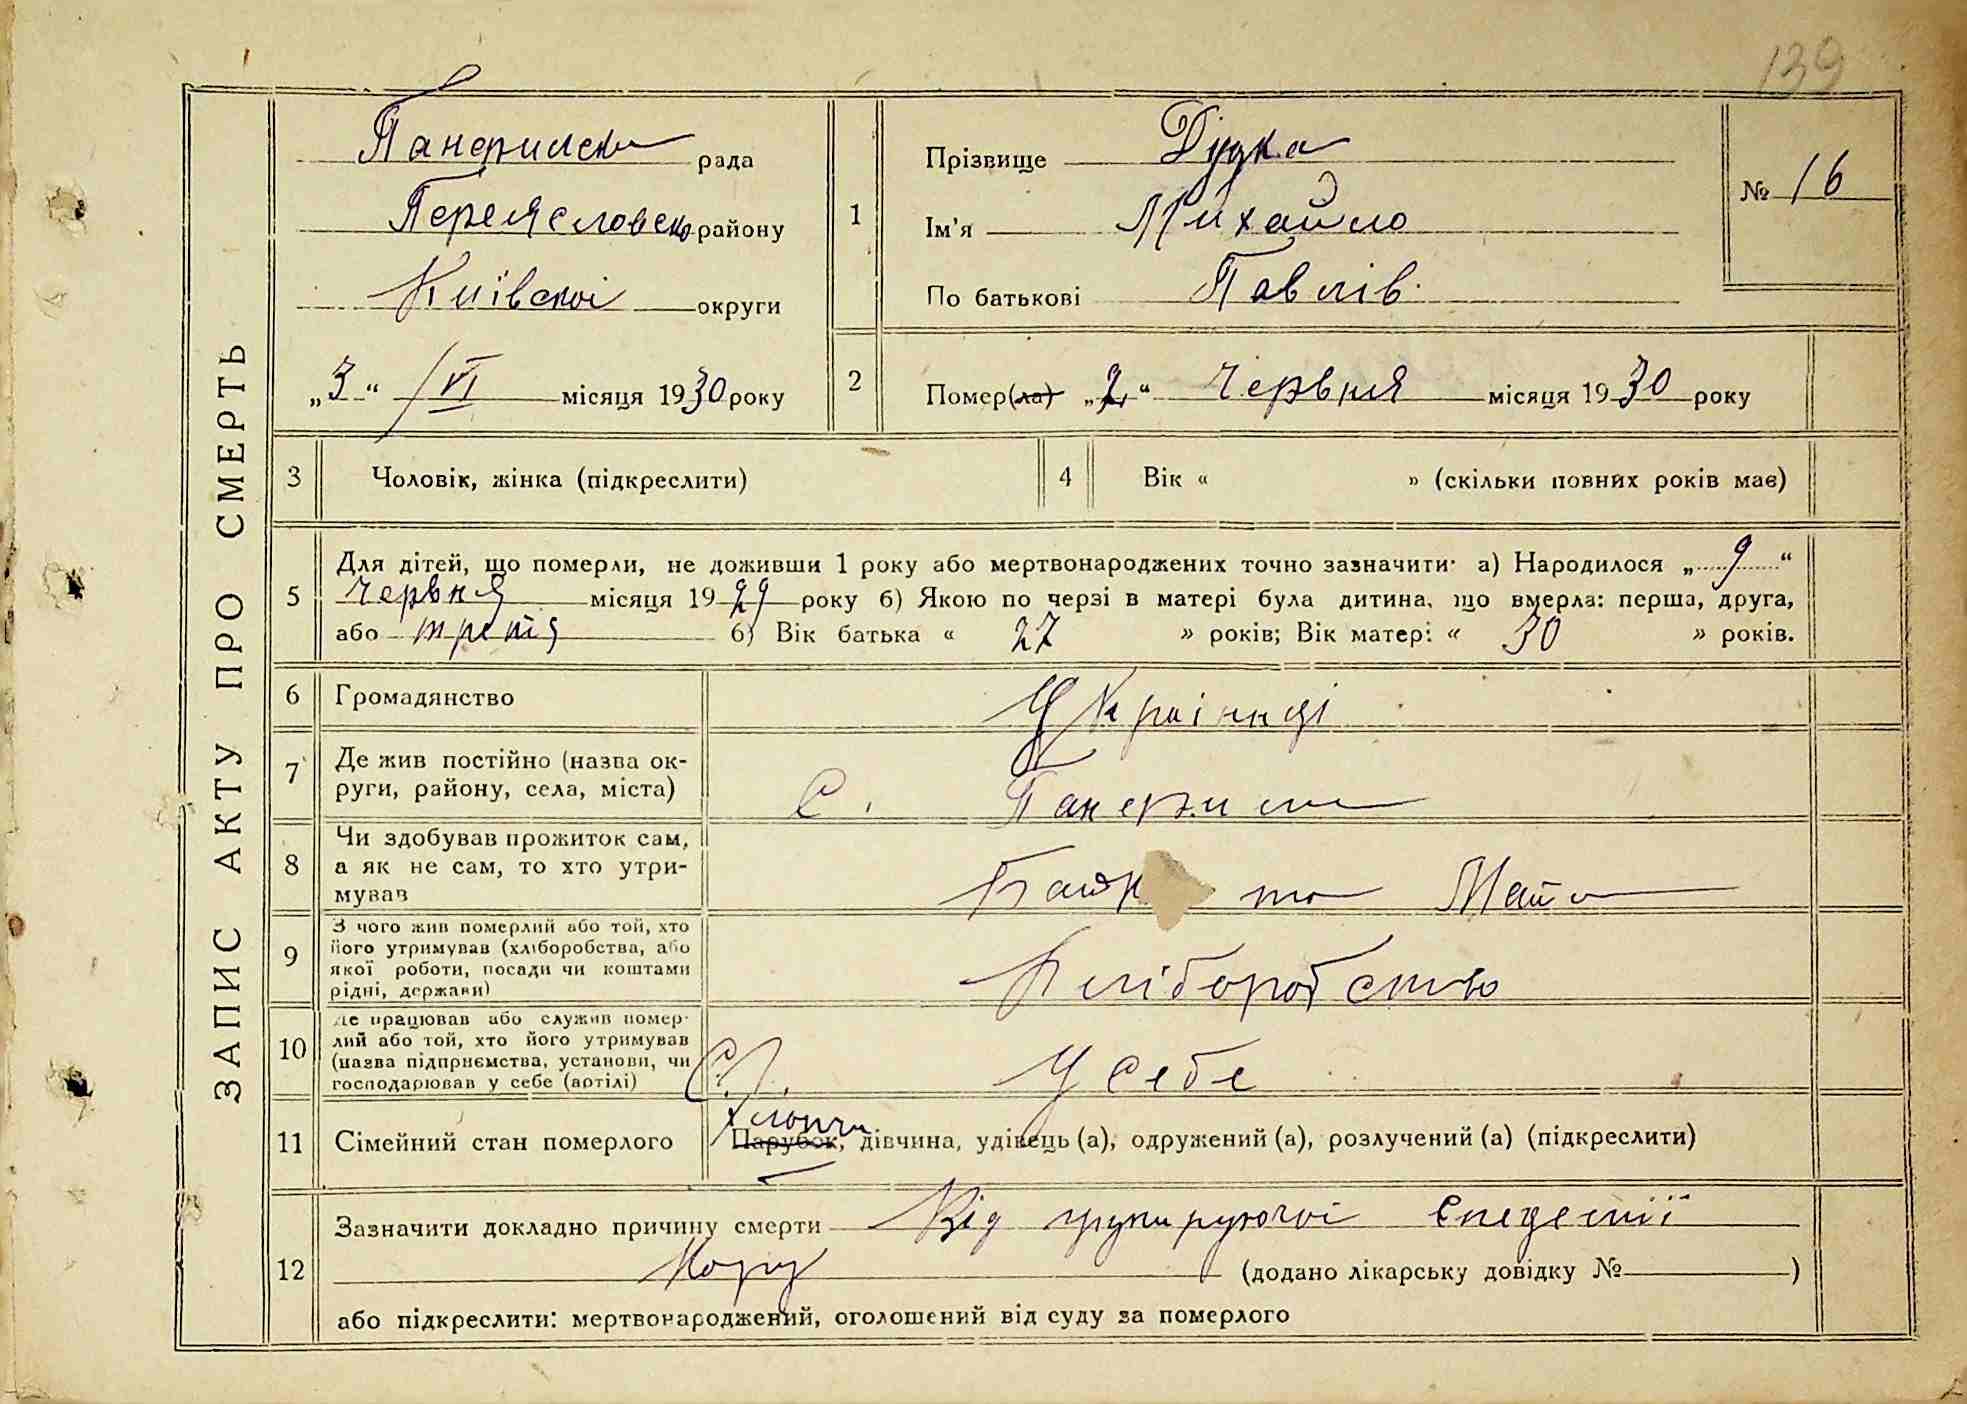 139
ЗАПИС АКТУ ПРО СМЕРТЬ
Панфилськ рада
Переяславськ району
Київської округи
„3“ /VI місяця 1930 року
1
Прізвище Дудка
Ім'я Михайло
По батькові Павлів.
№ 16
2
Помер(ла) „2“ Червня місяця 1930 року
3 Чоловік, жінка (підкреслити)
4 Вік « » (скільки повних років має)
5
Для дітей, що померли, не доживши 1 року або мертвонароджених точно зазначити: а) Народилося „9“
Червня місяця 1929 року б) Якою по черзі в матері була дитина, що вмерла: перша, друга,
або третя б) Вік батька « 27 » років; Вік матері « 30 » років.
6 Громадянство Українці
7
Де жив постійно (назва ок-
руги, району, села, міста)
с. Панфили
8
Чи здобував прожиток сам,
а як не сам, то хто утри-
мував
Батьк та Мати
9
З чого жив померлий або той, хто
його утримував (хліборобства, або
якої роботи, посади чи коштами
рідні, держави)
Хліборобство
10
Де працював або служив помер-
лий або той, хто його утримував
(назва підприємства, установи, чи
господарював у себе (артілі)
У себе
11 Сімейний стан померлого
Хлопчик
Парубок, дівчина, удівець (а), одружений (а), розлучений (а) (підкреслити)
12
Зазначити докладно причину смерти Від Епедемії
Кору (додано лікарську довідку № )
або підкреслити: мертвонароджений, оголошений від суду за померлого